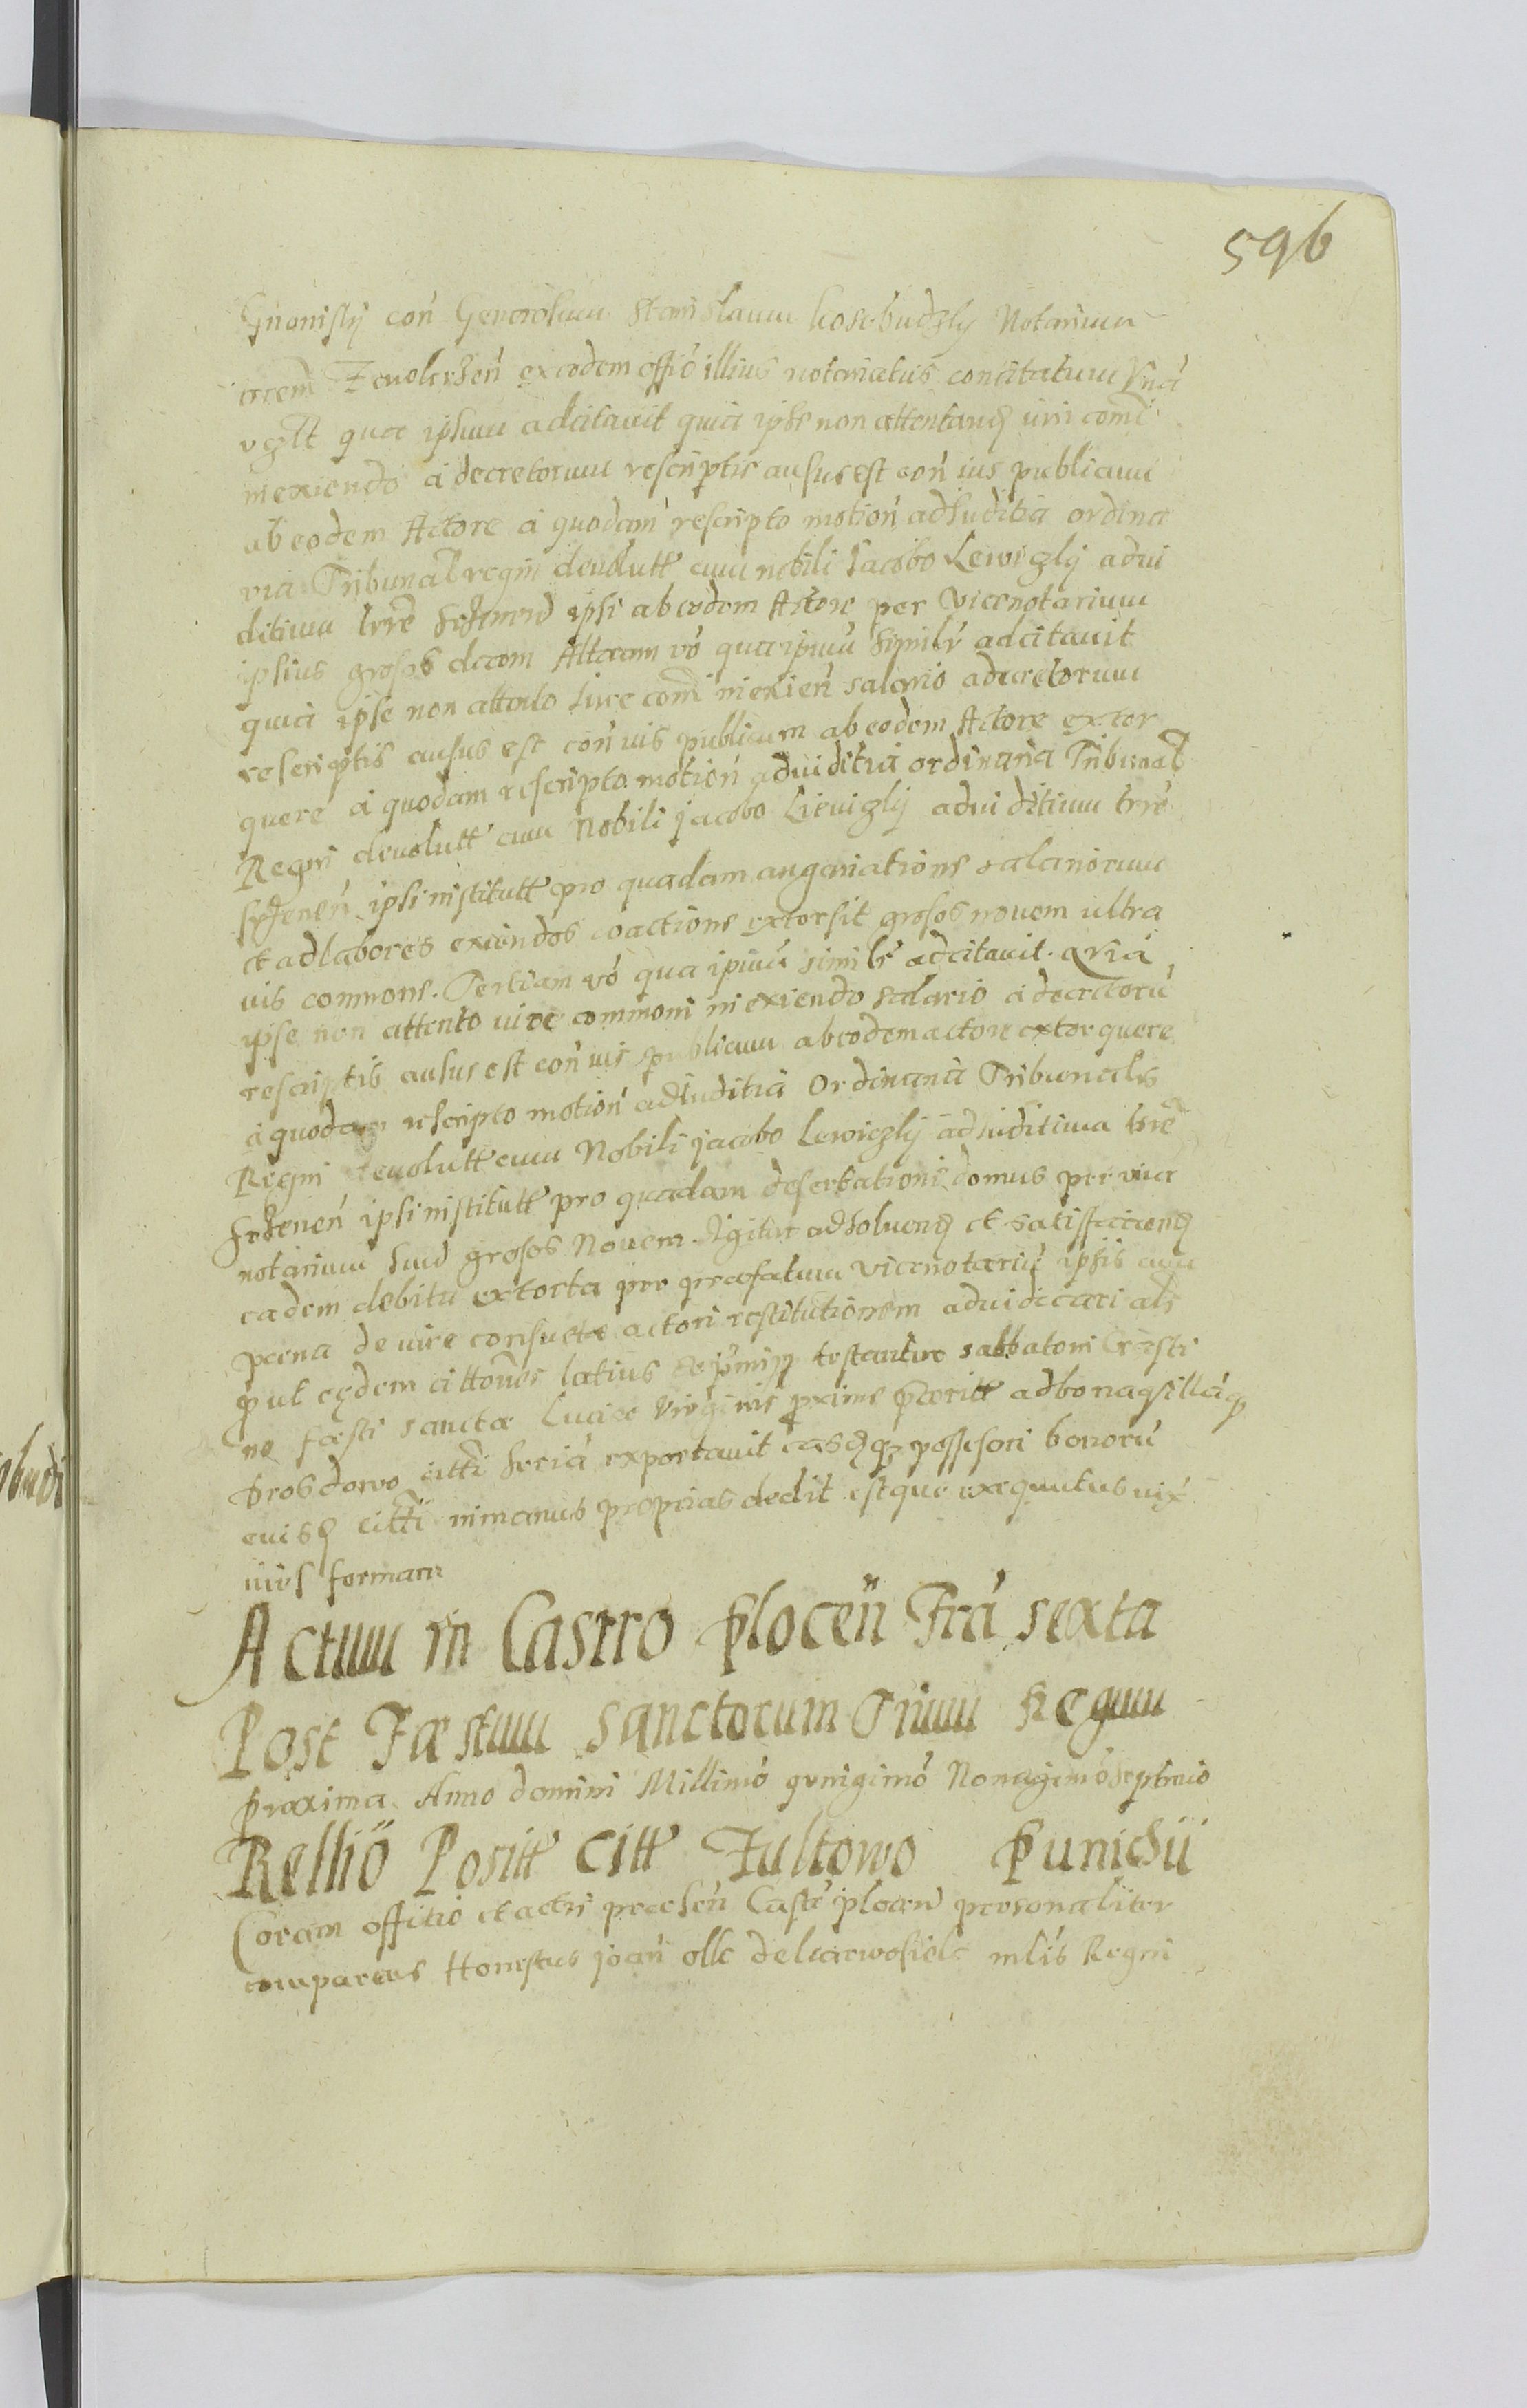 596
con Generosum Stanislaum Kosobudzky Notarium
exeodem offio illius notariatus concitatum Una
qua ipsum adcitavit quia ipse non attentand iuri comi
inexiendo a decretorum rescriptis ausus est con ius publicum
ab eodem Actore a quodam rescripto motion adiuditia ordina
ria Tribunal regni devolutt cum nobili Jacobo Lewiczky adiu
ditium trre ipsi ab eodem Actore per Vicenotarium
ipsius grosos decem Alteram vo qua ipsum similr adcitavit
quia ipse non attento iure comi inexien salario a decretorum
rescriptis ausus est con ius publicum ab eodem Actore extor
quere a quodam rescripto motion adiuditia ordinaria Tribunal
Regni devolutt cum Nobili Jacobo Lieviczky adiuditium trre
ipsi institutt pro quadam angariatione salariorum
et ad labores exiendos coactione extorsit grosos novem ultra
ius commone. Tertiam vo qua ipsum similr adcitavit. Qria
ipse non attento iure commoni in exiendo salario a decretoru
rescriptis ausus est con ius publicum ab eodem actore extorquere
a quodam rescripto motion adiuditia Ordinaria Tribunalis
Regni devolutt cum Nobili Jacobo Lewiczky adiuditium trre
ipsi institutt pro quadam desertationi domus per vice
notarium suu grosos Novem. Igitur adsolvend et satisfaciend
eadem debitu extorta per praefatum vicenotariu ipsis cum
poena de iure consueta actori restitutionem adiudicari als
put eedem cittones latius testantur sabbatoni Crasti
no faesti sanctae Luciae Virginis proxime praeteritt ad bona q villa q
Drosdowo citti feria exportavit easd q possesori bonoru
euisd citti in manus proprias dedit estque exequutus iux
iuris formam
Actum in Castro Plocen Fra sexta
Post Faestum Sanctorum Trium Regum
proxima Anno domini Millimo qvnigimo Nonagimo septimo
Rellio Positt Citt Fultowo Punichii
Coram offitio et actis praesen Castr plocen personaliter
comparens Honestus Joan olk de Karwosieki mlis Regni